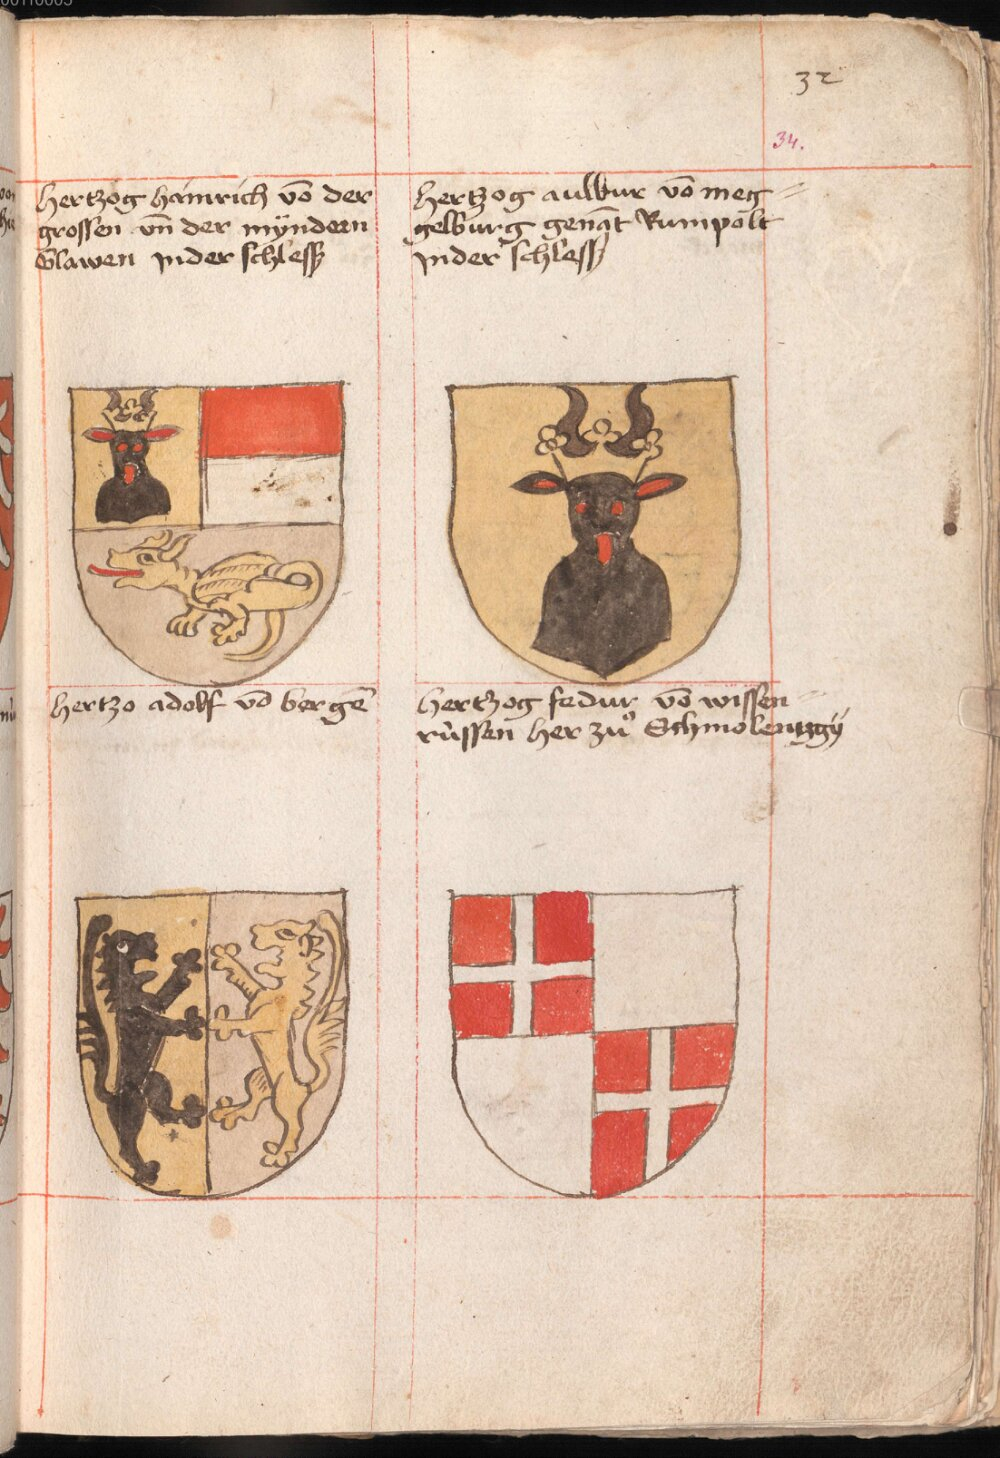 32
34.
hertzog hainrich vō der
grossen vn̄ der mÿndern
Glawen jn der schlesß
hertzog aulbur vō meg=
gelburg genāt Rumpolt
jn der schlesß
hertzo adolf vō bergē
hertzog fedur vō wissen=
rüssen her zuͦ Schmolentzgÿ